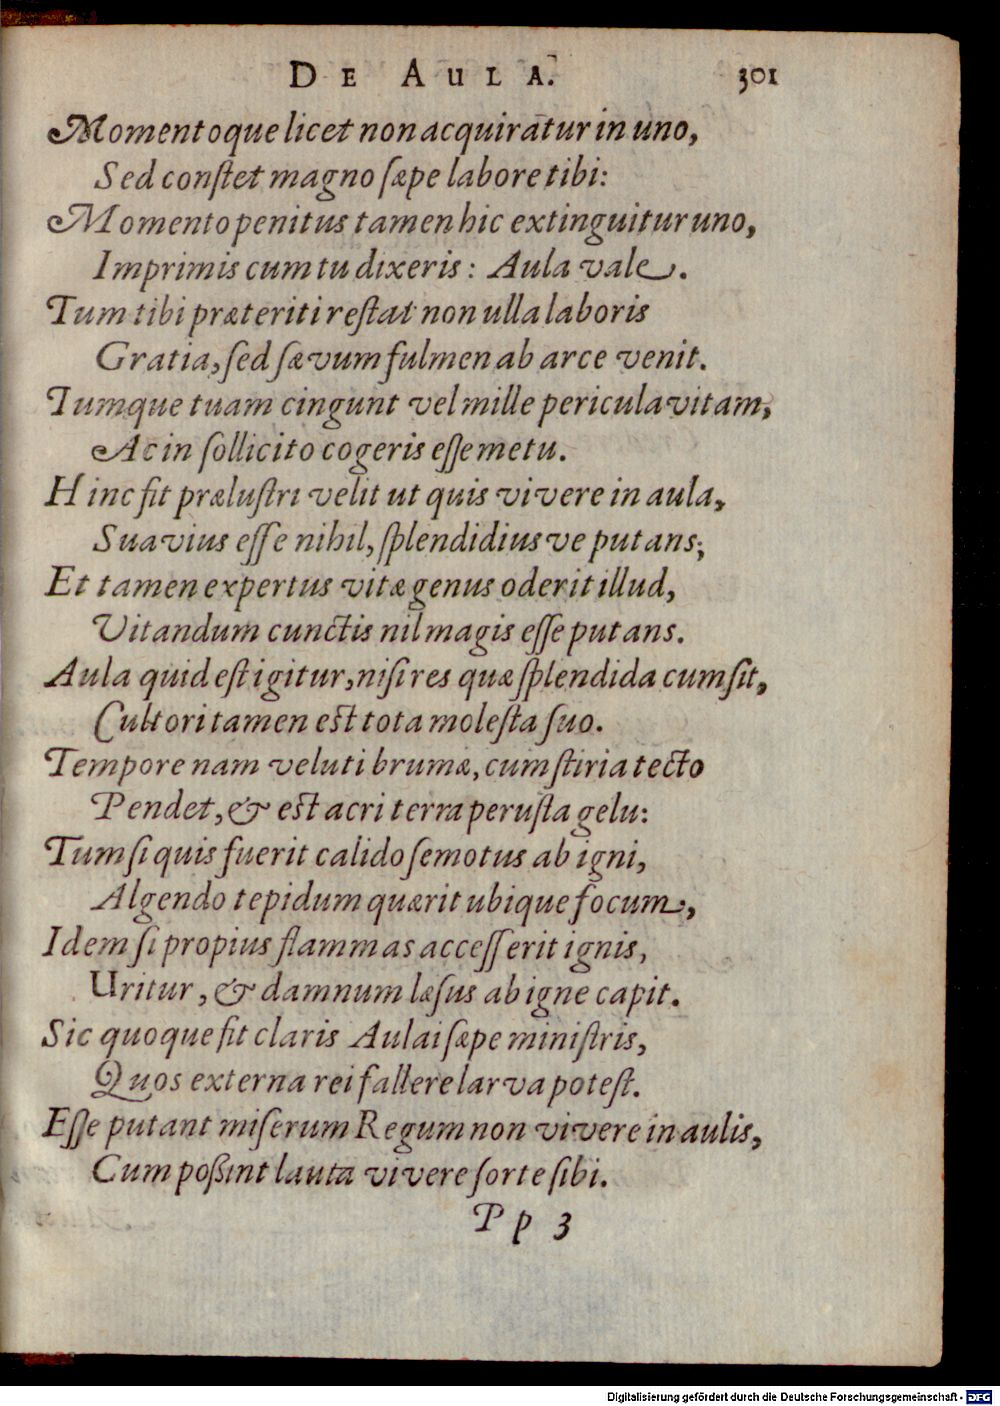 DE AULA. 301
Momentoque licet non acquiratur in uno,
Sed constet magno sæpe labore tibi:
Momento penitus tamen hic extinguitur uno,
Imprimis cum tu dixeris: Aula vale.
Tum tibi præteriti restat non ulla laboris
Gratia, sed sævum fulmen ab arce venit.
Tumque tuam cingunt vel mille pericula vitam,
Ac in sollicito cogeris esse metu.
Hinc fit prælustri velit ut quis vivere in aula,
Suavius esse nihil, splendidiusve putans;
Et tamen expertus vitæ genus oderit illud,
Vitandum cunctis nil magis esse putans.
Aula quid est igitur, nisi res quæ splendida cum sit,
Cultori tamen est tota molesta suo.
Tempore nam veluti brumæ, cum stiria tecto
Pendet, & est acri terra perusta gelu:
Tum si quis fuerit calido semotus ab igni,
Algendo tepidum quærit ubique focum,
Idem si propius flammas accesserit ignis,
Uritur, & damnum læsus ab igne capit.
Sic quoque fit claris Aulai sæpe ministris,
Quos externa rei fallere larva potest.
Esse putant miserum Regum non vivere in aulis,
Cum possint lauta vivere sorte sibi.
Pp 3
Digitalisierung gefördert durch die Deutsche Forschungsgemeinschaft - DFG